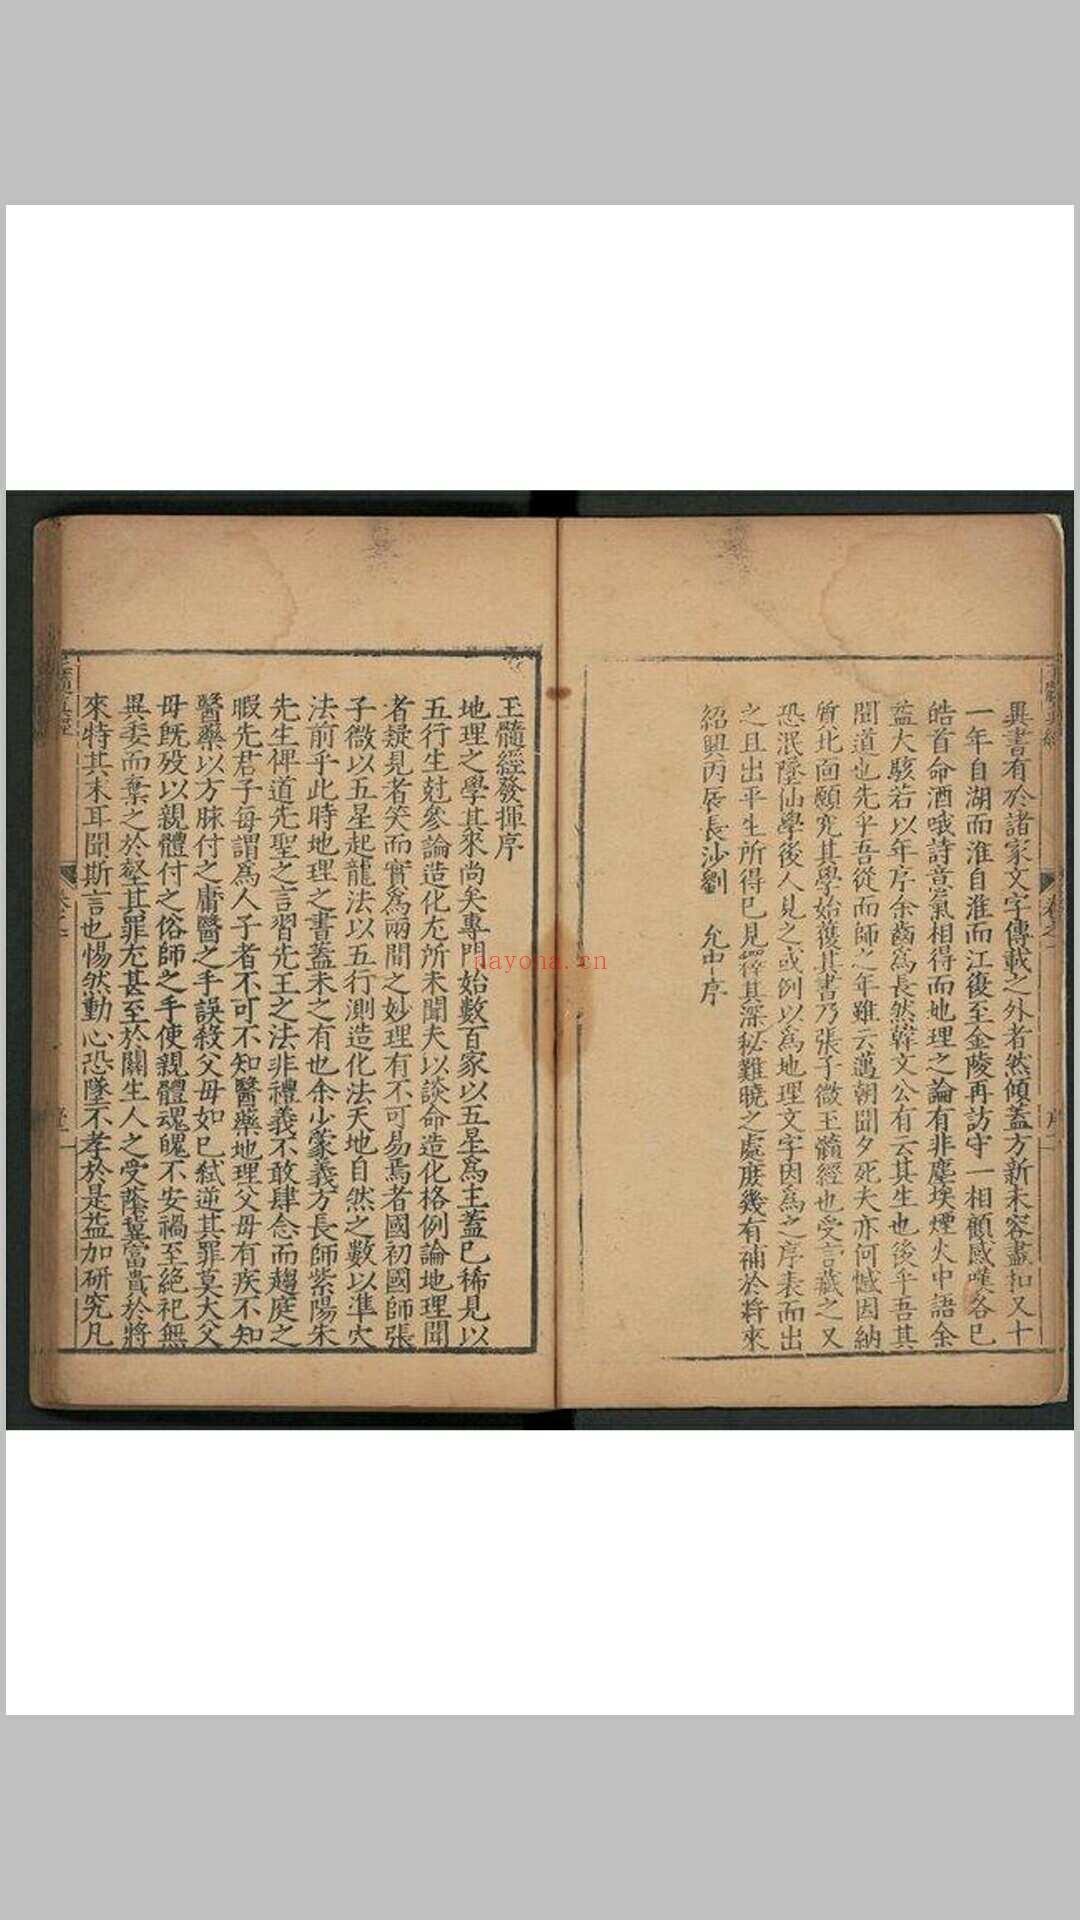 異書有於諸家文字傳載之外者然傾蓋方新未容盡扣又十
一年自湖而淮自淮而江復至金陵再訪守一相顧感嘆各巳
皓首命酒哦詩意氣相得而地理之論有非塵埃煙火中語余
益大駭若以年序余齒爲長然韓文公有云其生也後乎吾其
聞道也先乎吾從而師之年雖云邁朝聞夕死夫亦何憾因納
質北面願究其學始獲其書乃張子微玉髓經也受言藏之又
恐泯墜仙學後人見之或例以爲地理文字因爲之序表而出
之且出平生所得巳見釋其深秘難曉之處庻幾有補於將來
紹興丙辰長沙劉 允中序
玉髓經發揮序
地理之學其來尚矣專門始數百家以五星爲主蓋巳稀見以
五行生尅參論造化尤所未聞夫以談命造化格例論地理聞
者疑見者笑而實爲兩間之妙理有不可易焉者國初國師張
子微以五星起龍法以五行測造化法天地自然之數以凖穴
法前乎此時地理之書蓋未之有也余少蒙義方長師紫陽朱
先生俾道先聖之言習先王之法非禮義不敢肆念而趨庭之
暇先君子每謂爲人子者不可不知醫藥地理父母有疾不知
醫藥以方脉付之庸醫之手誤殺父母如巳弑逆其罪莫大父
母旣歿以親體付之俗師之手使親體魂魄不安禍至絶祀無
異委而棄之於壑其罪尤甚至於關生人之受蔭冀富貴於將
來特其末耳聞斯言也惕然動心恐墜不孝於是益加研究凡
nayona.cn